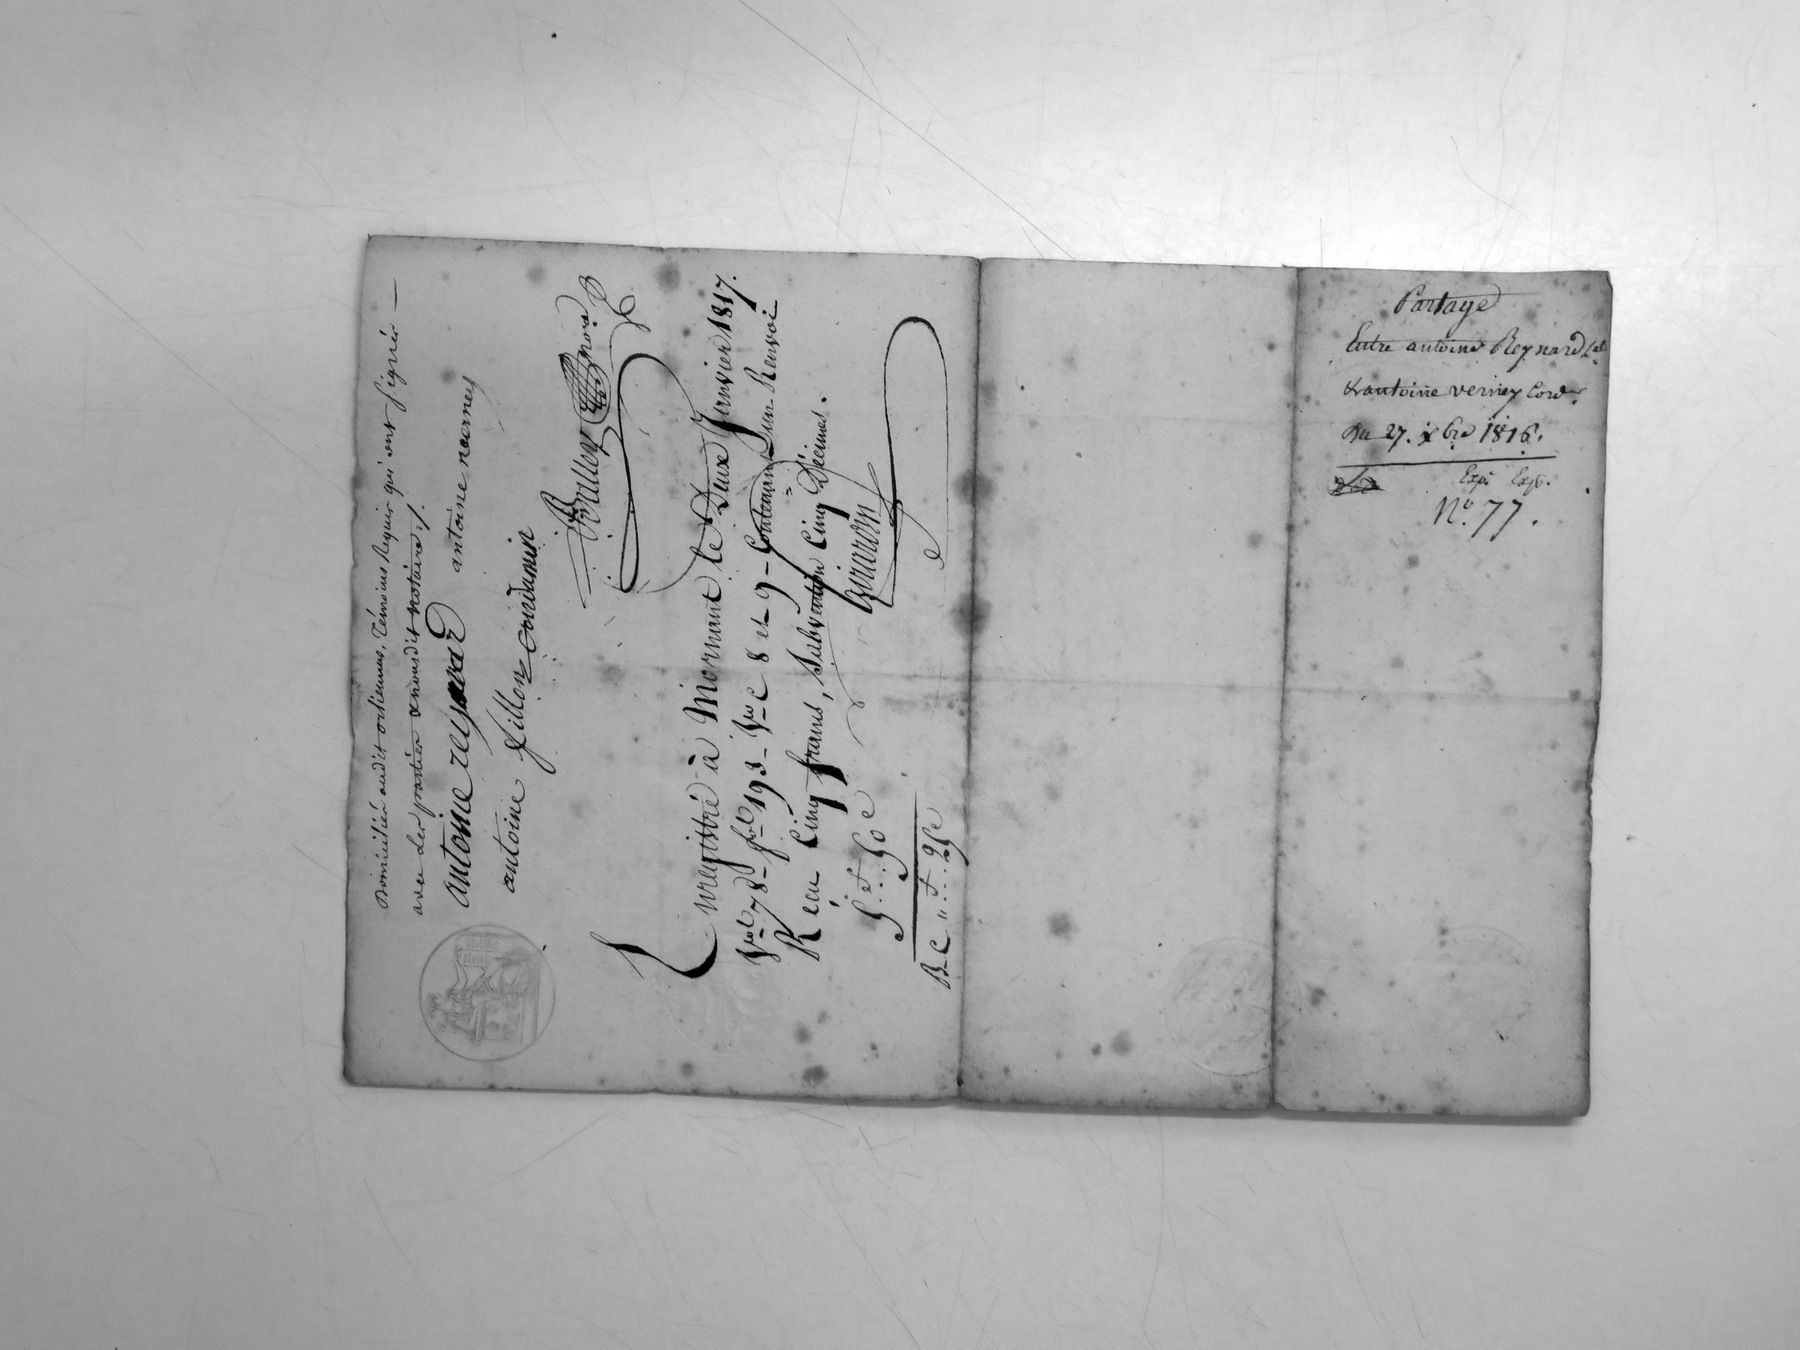 Domiciliés audit orliennas, Témoins Requis qui ont signés —
avec les parties & nousdit notaire ./.
antoine reynard antoine verney
antoine fillon Condamin
Brulley nore
Enregistré à Mornant le Deux Janvier 1817.
Vol 78 - fol 193 - Vo C 8 et 9 - Contenant un Renvoi
Reçu Cinq francs, Subvention Cinq Décimes.
5f..50c Girardon
B-C "f..25c
Partage
Entre antoine Reynard
& antoine verney Cord.r
Du 27. xbre 1816.
Exp. Exp.
No. 77.